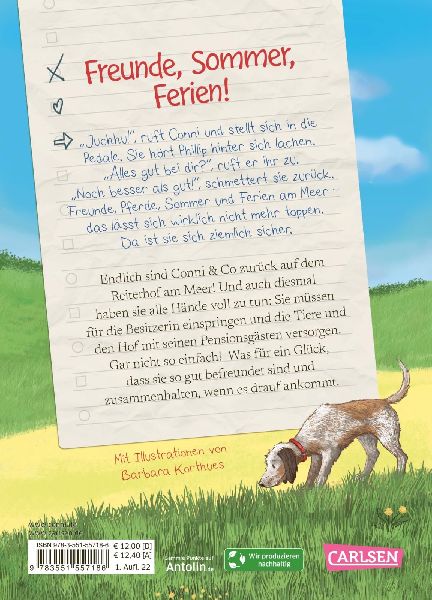 Freunde, Sommer,
Ferien!
„Juchhu!“, ruft Conni und stellt sich in die
Pedale. Sie hört Phillip hinter sich lachen.
„Alles gut bei dir?“, ruft er ihr zu.
„Noch besser als gut!“, schmettert sie zurück.
Freunde, Pferde, Sommer und Ferien am Meer –
das lässt sich wirklich nicht mehr toppen.
Da ist sie sich ziemlich sicher.
Endlich sind Conni & Co zurück auf dem
Reiterhof am Meer! Und auch diesmal
haben sie alle Hände voll zu tun: Sie müssen
für die Besitzerin einspringen und die Tiere und
den Hof mit seinen Pensionsgästen versorgen.
Gar nicht so einfach! Was für ein Glück,
dass sie so gut befreundet sind und
zusammenhalten, wenn es drauf ankommt.
Mit Illustrationen von
Barbara Korthues
www.carlsen.de
ISBN 978-3-551-55718-6
9 783551 557186
€ 12.00 [D]
€ 12.40 [A]
1. Aufl. 22
Sammle Punkte auf
Antolin.de
Wir produzieren
nachhaltig
CARLSEN